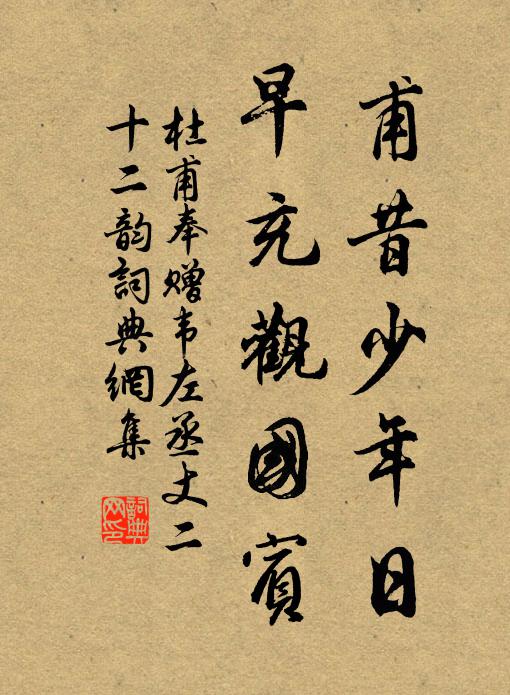 甫昔少年日
早充觀國賓
杜甫奉赠韦左丞丈二
十二韵詞典網集
詞典
网印